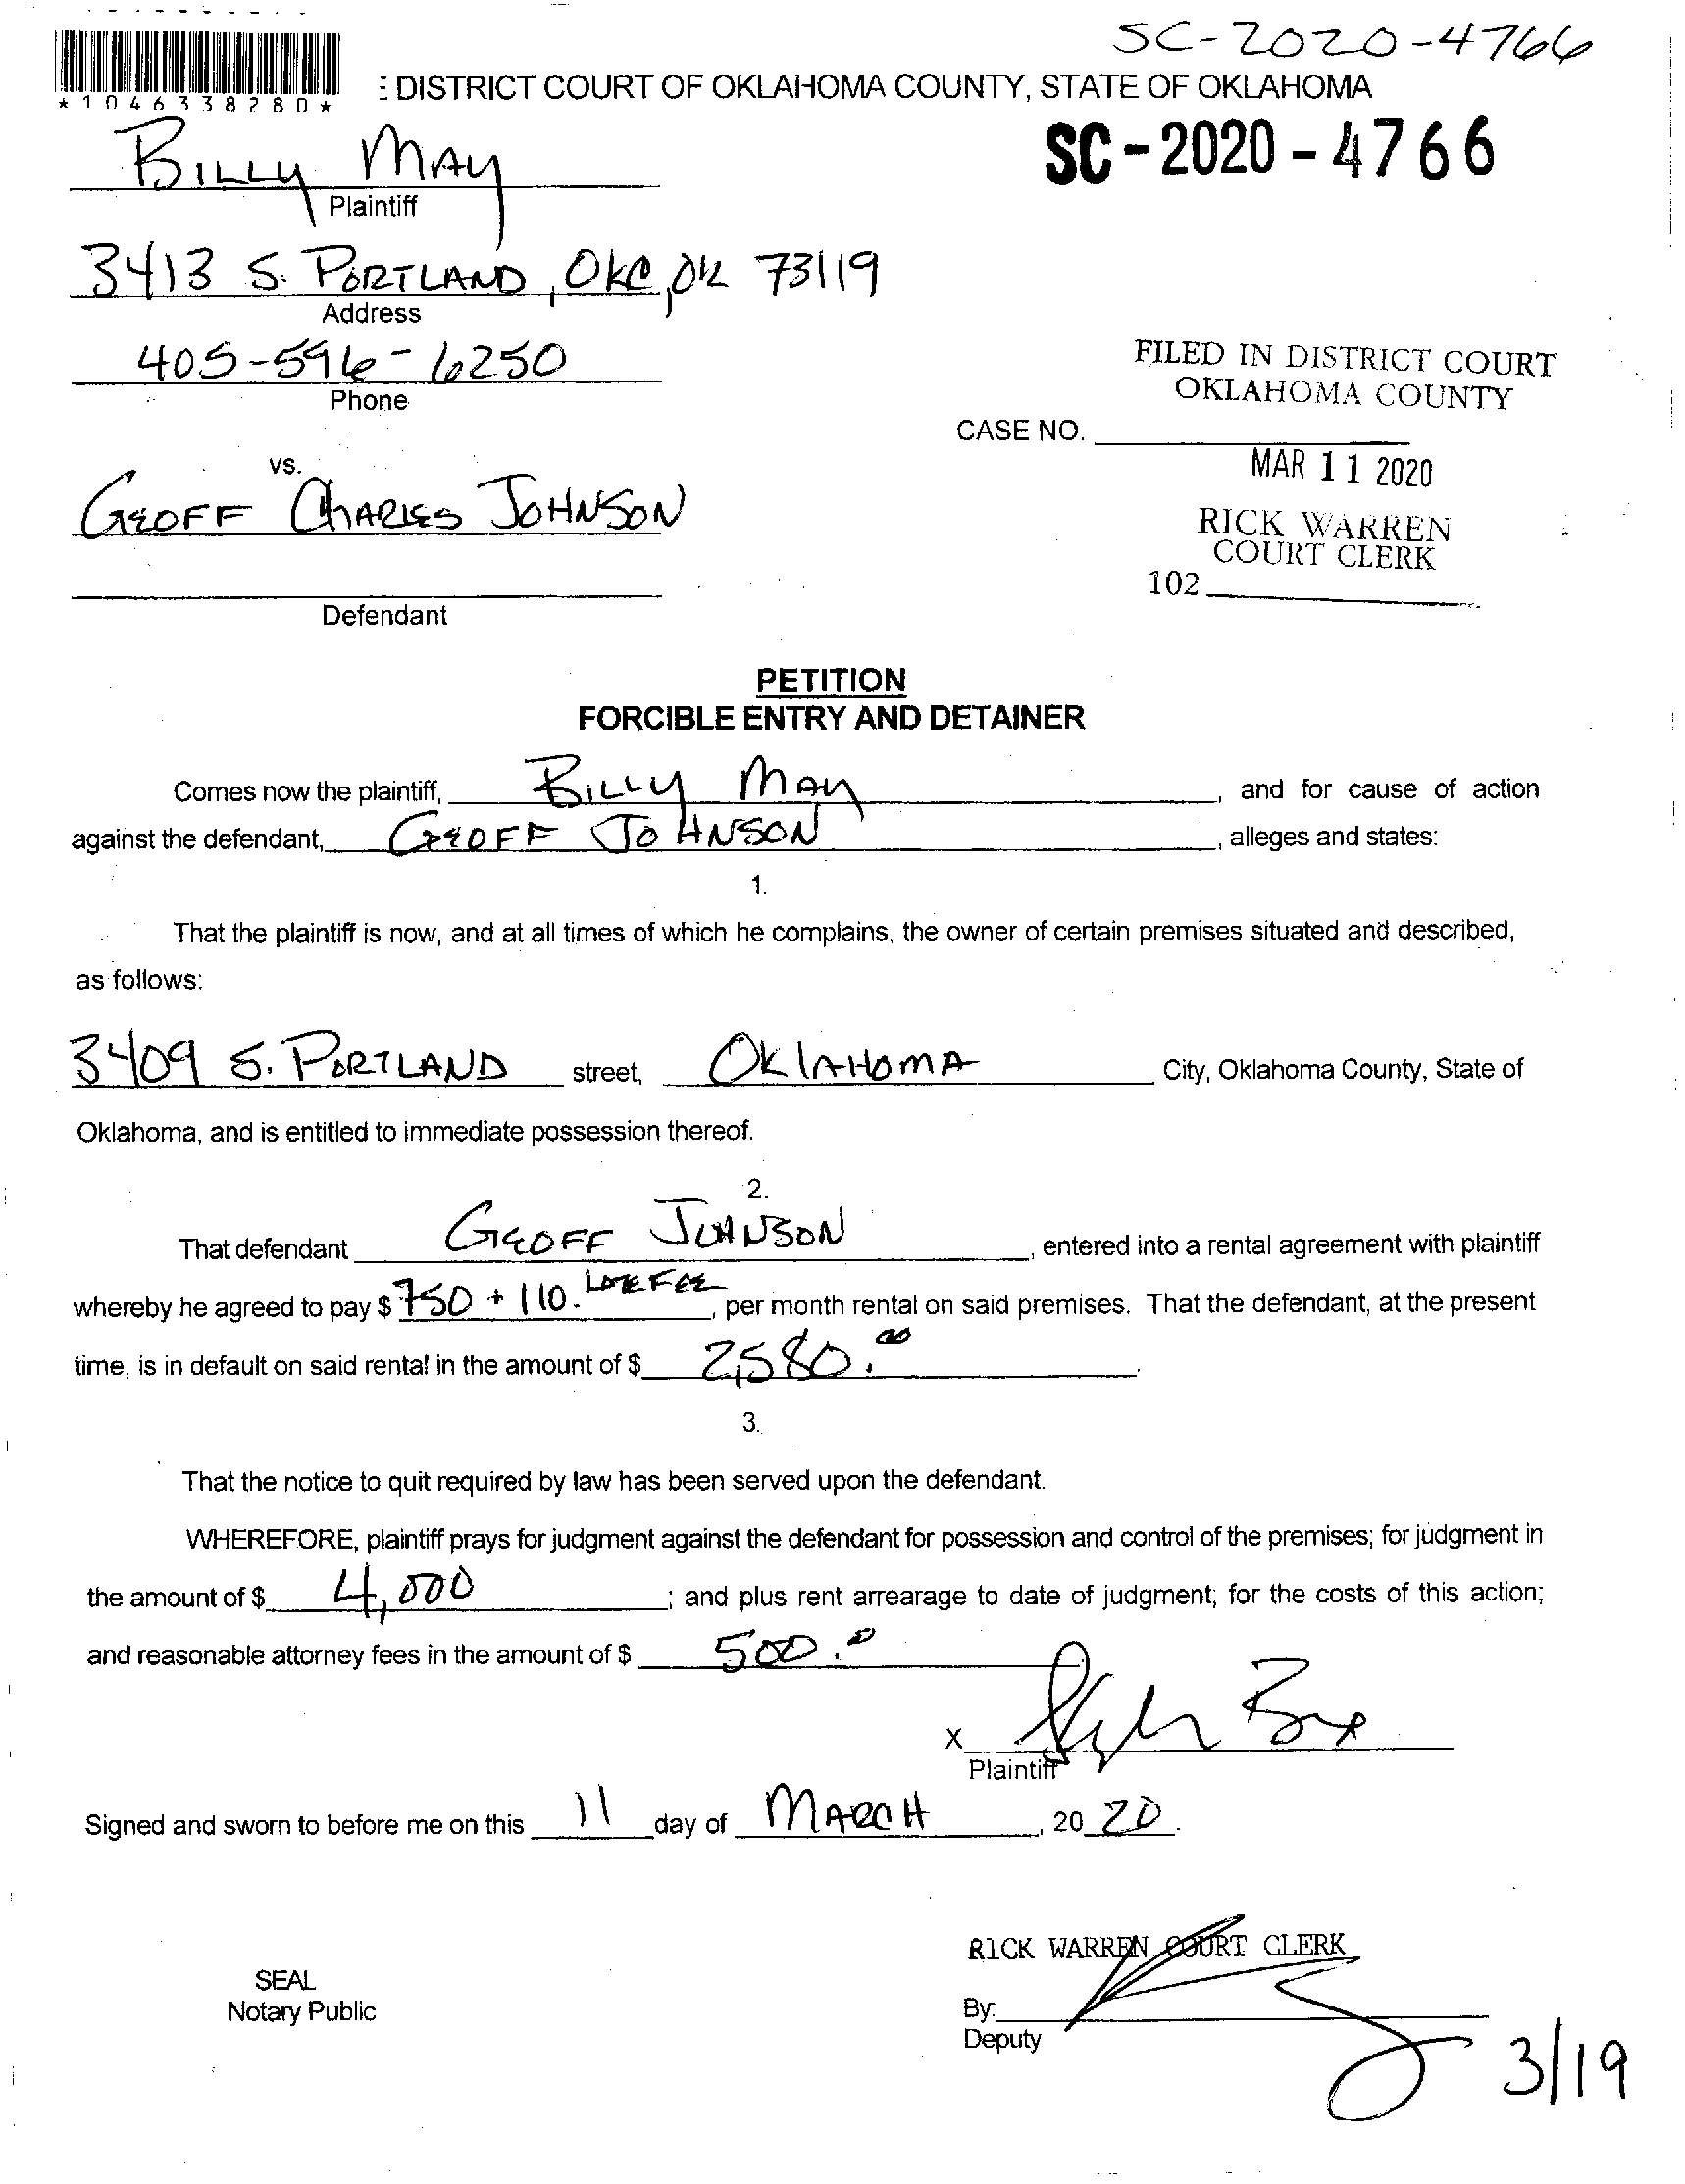 SC-2020-4766
*1046338280*
DISTRICT COURT OF OKLAHOMA COUNTY, STATE OF OKLAHOMA
BILLY MAY
SC-2020-4766
Plaintiff
3413 S. PORTLAND, OKC, OK 73119
Address
405-596-6250
Phone
FILED IN DISTRICT COURT
OKLAHOMA COUNTY
CASE NO.
MAR 11 2020
vs.
GEOFF CHARLES JOHNSON
RICK WARREN
COURT CLERK
102
Defendant
PETITION
FORCIBLE ENTRY AND DETAINER
Comes now the plaintiff, BILLY MAY, and for cause of action
against the defendant, GEOFF JOHNSON, alleges and states:
1.
That the plaintiff is now, and at all times of which he complains, the owner of certain premises situated and described,
as follows:
3409 S. PORTLAND street, OKLAHOMA City, Oklahoma County, State of
Oklahoma, and is entitled to immediate possession thereof.
2.
That defendant GEOFF JOHNSON, entered into a rental agreement with plaintiff
whereby he agreed to pay $ 750 + 110. LATE FEE, per month rental on said premises. That the defendant, at the present
time, is in default on said rental in the amount of $ 2,580.00.
3.
That the notice to quit required by law has been served upon the defendant.
WHEREFORE, plaintiff prays for judgment against the defendant for possession and control of the premises; for judgment in
the amount of $ 4,000; and plus rent arrearage to date of judgment; for the costs of this action;
and reasonable attorney fees in the amount of $ 500.00
X
Plaintiff
Signed and sworn to before me on this 11 day of MARCH, 20 20.
RICK WARREN COURT CLERK
SEAL
Notary Public
By:
Deputy
3/19